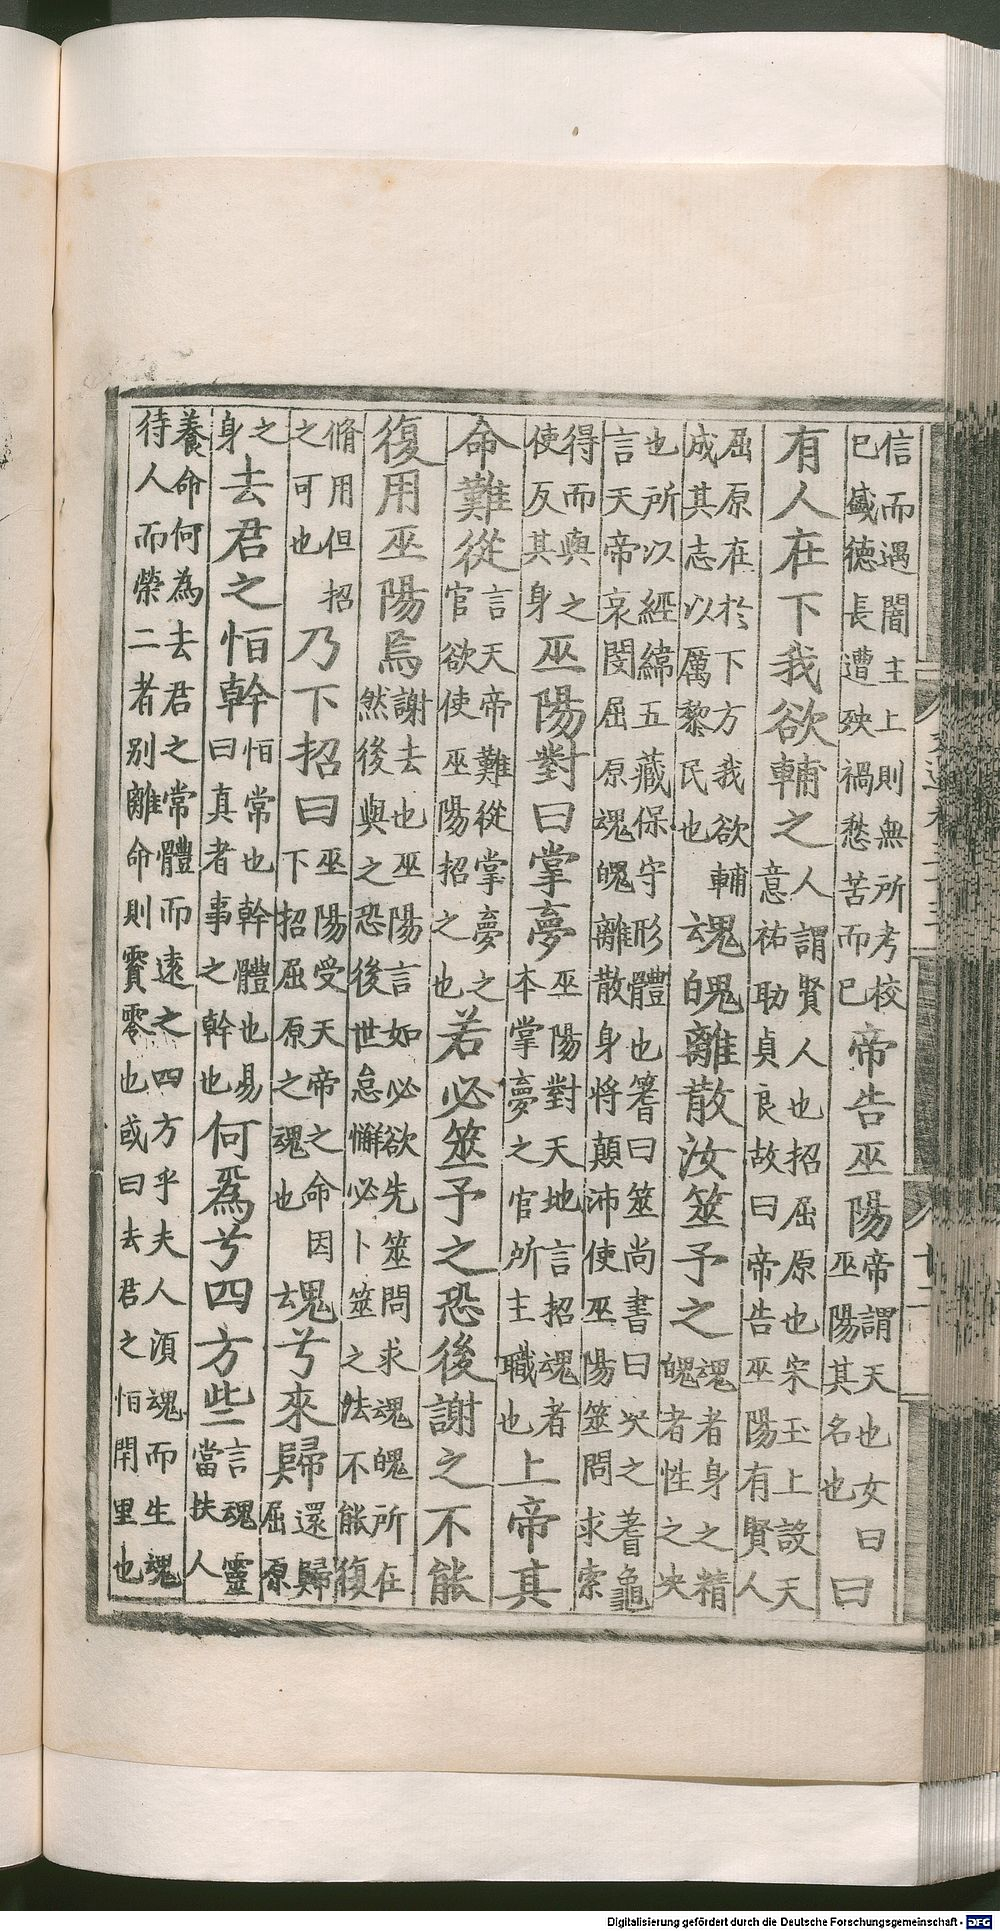 信而遇闇主上則無所考校
已盛德長遭殃禍愁苦而已
帝告巫陽
帝謂天也女曰
巫陽其名也
曰
有人在下我欲輔之
人謂賢人也招屈原也宋玉上設天
意祐助貞良故曰帝告巫陽有賢人
屈原在於下方我欲輔
成其志以厲黎民也
魂魄離散汝筮予之
魂者身之精
魄者性之央
也所以經緯五藏保守形體也蓍曰筮尚書曰決之蓍龜
言天帝哀閔屈原魂魄離散身將顛沛使巫陽筮問求索
得而與之
使反其身
巫陽對曰掌夢
巫陽對天地言招魂者
本掌夢之官所主職也
上帝其
命難從
言天帝難從掌夢之
官欲使巫陽招之也
若必筮予之恐後謝之不能
復用巫陽焉
謝去也巫陽言如必欲先筮問求魂魄所在
然後與之恐後世怠懈必卜筮之法不能復
脩用但招
之可也
乃下招曰
巫陽受天帝之命因
下招屈原之魂也
魂兮來歸
還歸
屈原
之
身
去君之恒幹
恒常也幹體也易
曰真者事之幹也
何爲兮四方些
言魂靈
當扶人
養命何為去君之常體而遠之四方乎夫人須魂而生魂
待人而榮二者別離命則霣零也或曰去君之恒閈里也
Digitalisierung gefördert durch die Deutsche Forschungsgemeinschaft - DFG